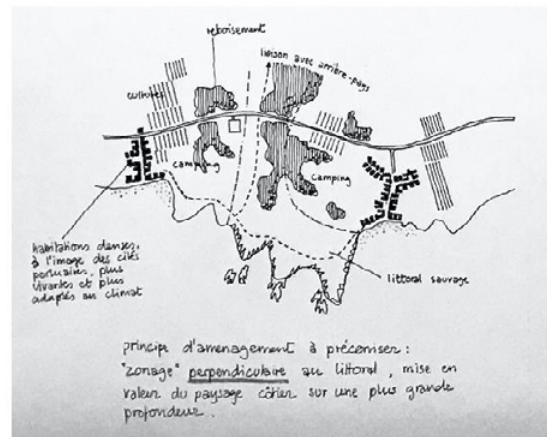 reboisement
liaison avec arrière-pays
cultures
camping
camping
habitations denses,
à l'image des cités
portuaires, plus
vivantes et plus
adaptés au climat
littoral sauvage
principe d'aménagement à préconiser :
"zonage" perpendiculaire au littoral, mise en
valeur du paysage côtier sur une plus grande
profondeur.